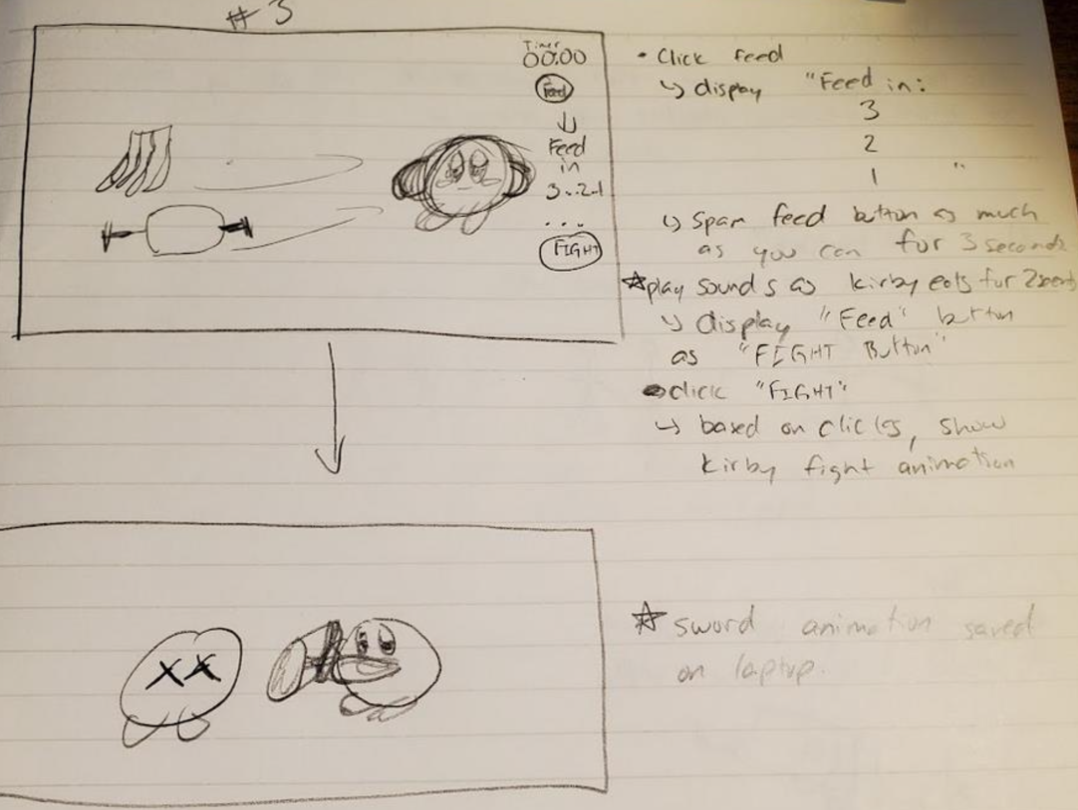 #3
Timer
00:00
Feed
Feed
in
3..2-1
...
FIGHT
• Click feed
↳ display "Feed in:
3
2
1 "
↳ Spam feed button as much
as you can for 3 seconds
☆play sounds as kirby eats for 2
↳ display "Feed" button
as "FIGHT Button"
• click "FIGHT"
↳ based on clicks, show
kirby fight animation
XX
☆ sword animation saved
on laptop.